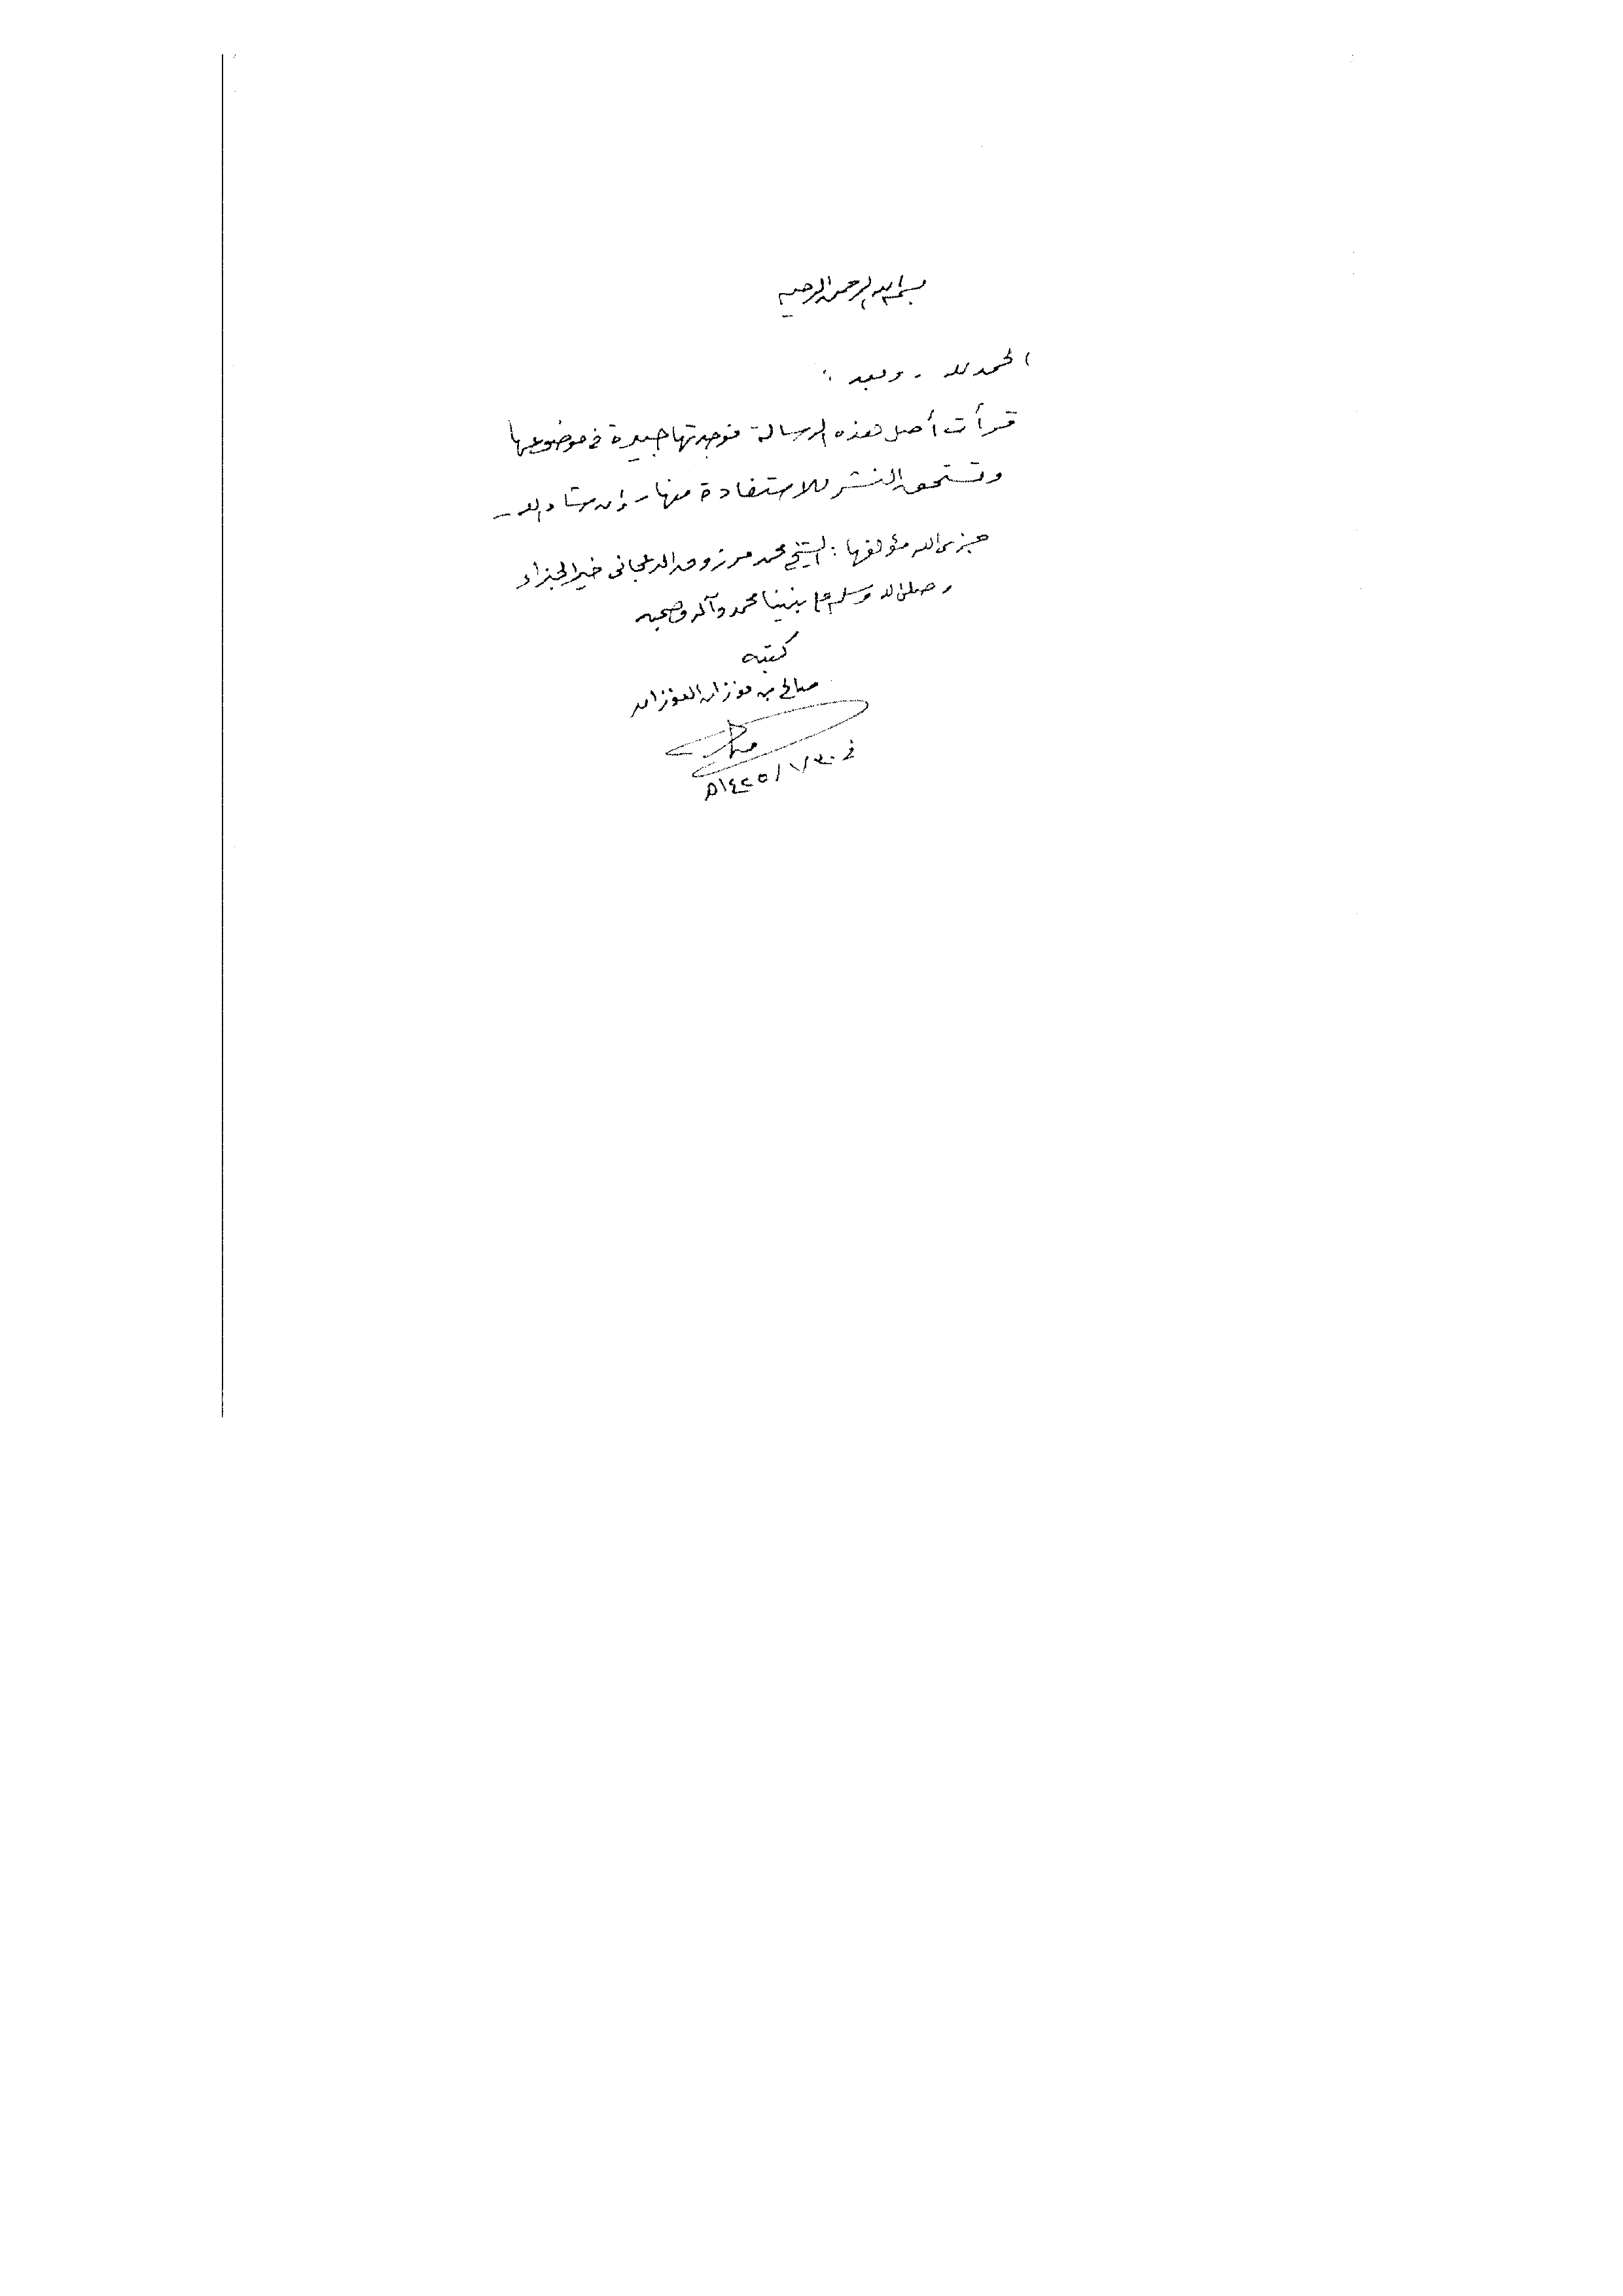 بسم الله الرحمن الرحيم
الحمد لله - وبعد :
قرأت أصل هذه الرسالة فوجدتها جيدة في موضوعها
وتستحق النشر للاستفادة منها - إن شاء الله -
جزى الله مؤلفها : الشيخ محمد مرزوق الدعجاني خير الجزاء
وصلى الله وسلم على نبينا محمد وآله وصحبه
كتبه
صالح بن فوزان الفوزان
في ١٤٢٥/١/٣٠هـ